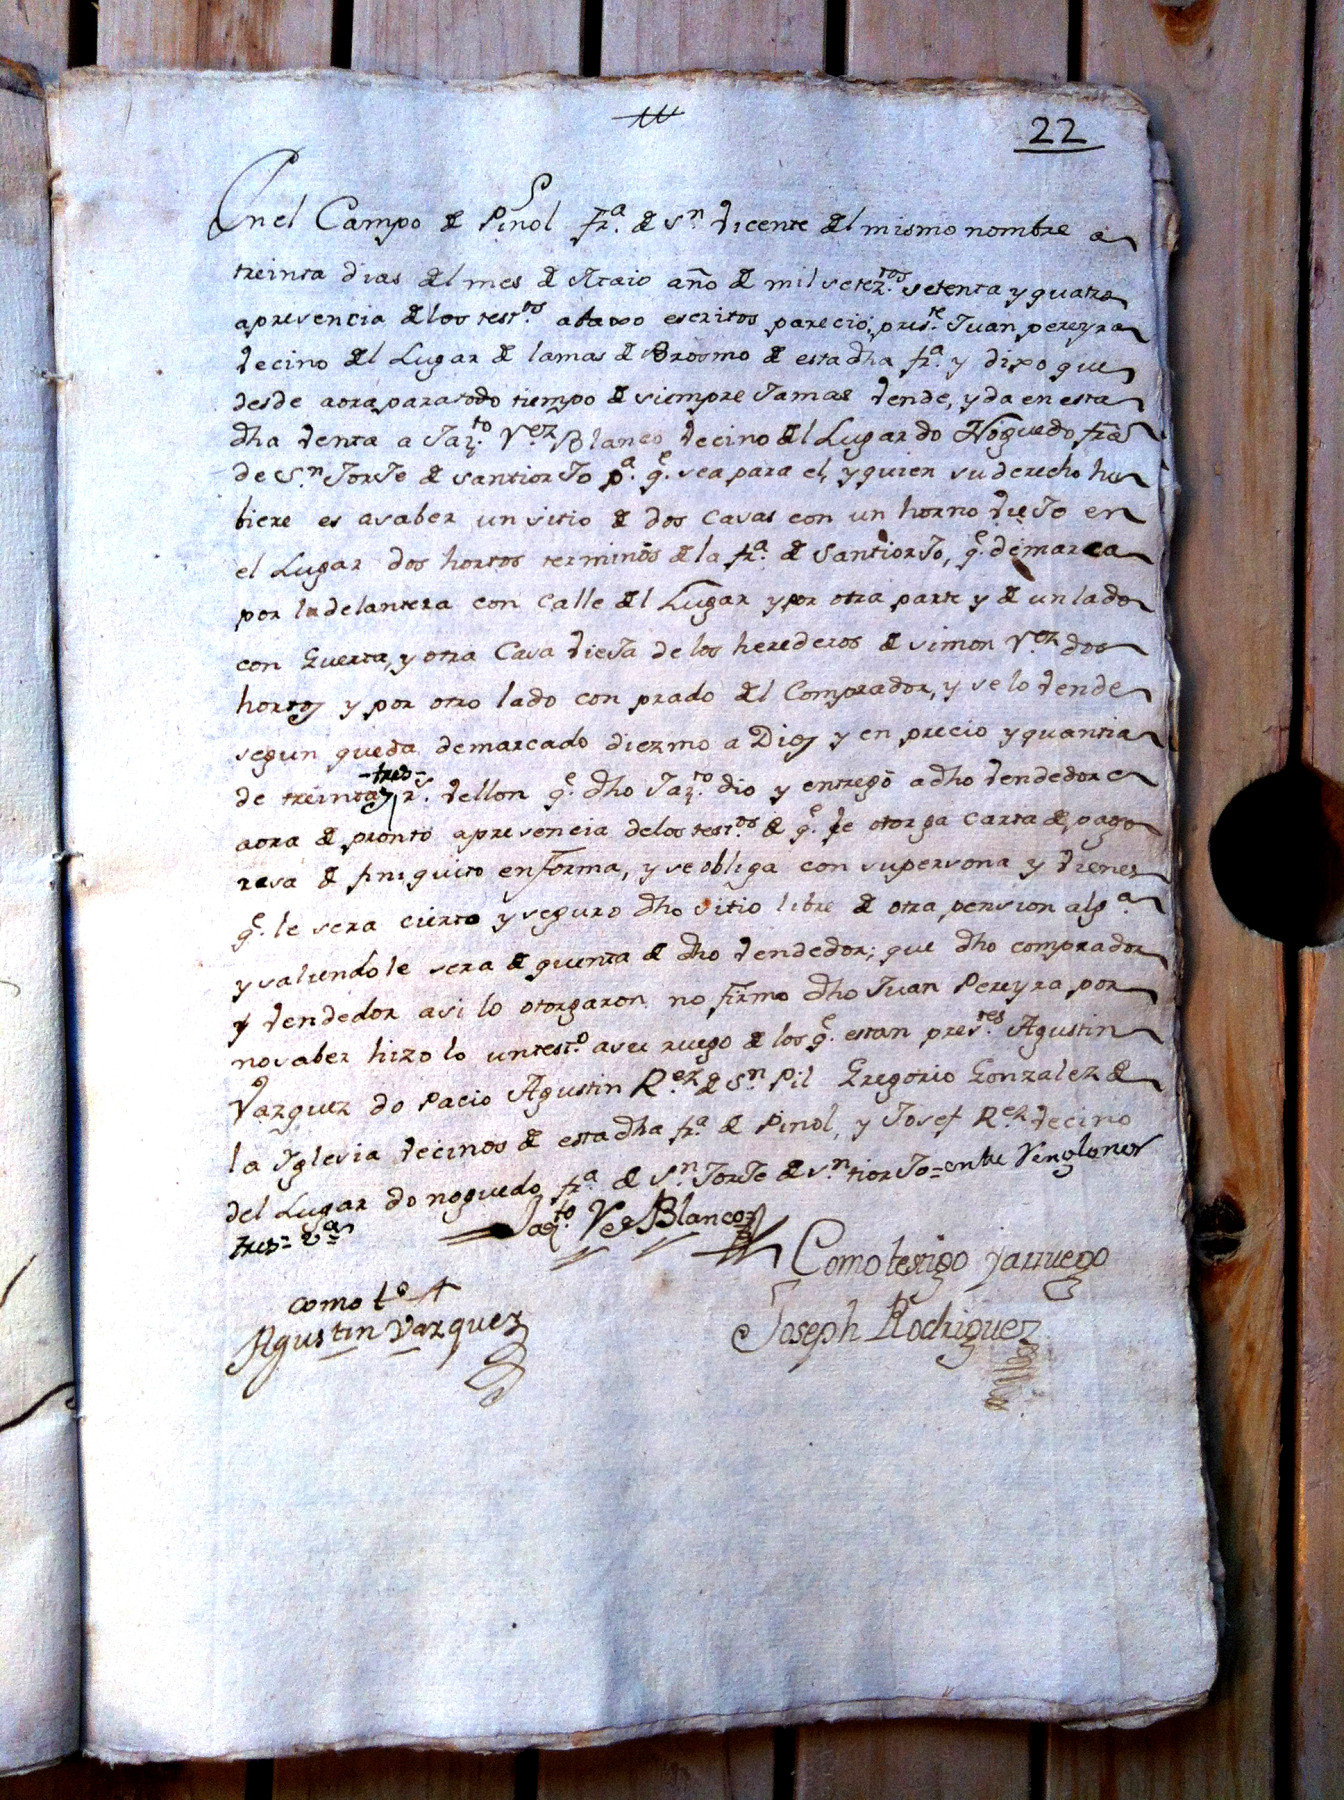 22
En el Campo de Piñol fra. de Sn. Vicente del mismo nombre a
treinta dias del mes de Maio año de mil seteztos. setenta y quatro
a presencia de los testos. abaxo escritos parecio, preste. Juan pereyra
vecino del Lugar de lamas de Brosmo de esta dha fra. y dixo que
desde aora para todo tiempo de siempre Jamas vende, y da en esta
dha venta a Jazto. Vez Blanco vecino del Lugar do Nóguedo fra
de Sn. JorJe de SantiorJo pa. qe. sea para el, y quien su derecho hu
biere es a saber un sitio de dos casas con un horno vieJo en
el Lugar dos hortos terminos de la fra. de SantiorJo, qe. demarca
por la delantera con Calle del Lugar y por otra parte y de un lado
con Guerta, y otra Casa vieJa de los herederos de simon Vez dos
hortos y por otro lado con prado del Comprador, y se lo vende
segun queda demarcado diezmo a Dios y en precio y quantia
-tres-
de treinta y rs. vellon qe. dho Jazto. dio y entregó a dho vendedor
aora de pronto a presencia de los testos. de qe. le otorga carta de pago
rasa de finiquito en forma, y se obliga con su persona y vienes
qe. le sera cierto y seguro dho sitio libre de otra pension alga.
y saliendole sera de quenta de dho vendedor; que dho comprador
y vendedor asi lo otorgaron no firmo dho Juan Pereyra por
no saber hizo lo un testo. a seu ruego de los qe. estan prestes. Agustin
Vazquez do Pacio Agustin Rez. de Sn. Pil Gregorio Gonzalez de
la Yglesia vecinos de esta dha fra. de Pinol, y Josef Rez. vecino
del Lugar do noguedo fra. de Sn. JorJe de Sn. tiorJo=entre Renglones
tres= Va=
Jazto. Vez Blanco
Como testigo y arruego
Joseph Rodriguez
como to.
Agustin Vazquez